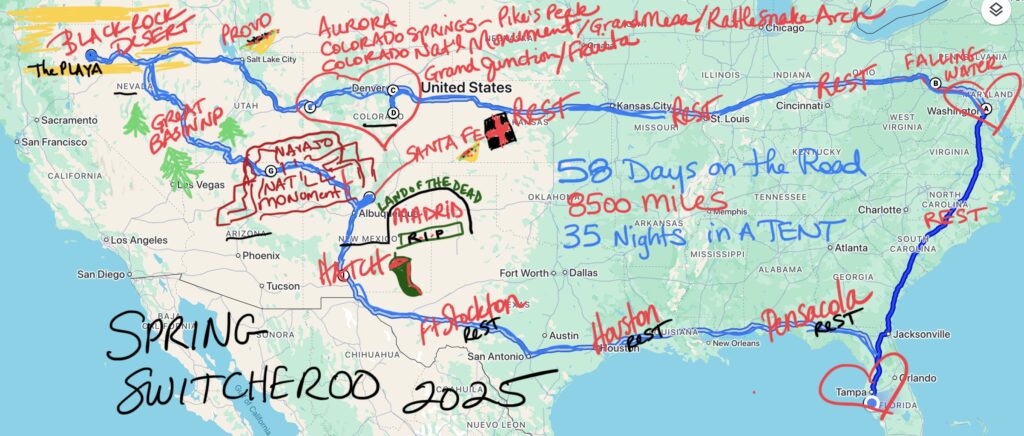 BLACK ROCK
DESERT
The PLAYA
PROVO
AURORA
COLORADO SPRINGS - Pike's Peak
COLORADO Nat'l Monument/Grand Mesa/Rattlesnake Arch
Grand Junction/Fruita
FALLING
WATER
REST
REST
REST
REST
GREAT
BASIN NP
NAVAJO
NAT'L
MONOMENT
SANTA FE
LAND OF THE DEAD
MADRID
R.I.P
HATCH
58 Days on the Road
8500 miles
35 Nights in A TENT
Ft Stockton
REST
Houston
REST
Pensacola
REST
SPRING
SWITCHEROO 2025
Salt Lake City
NEVADA
UTAH
Denver
COLORADO
United States
KANSAS
Kansas City
MISSOURI
St. Louis
ILLINOIS
INDIANA
OHIO
Chicago
Cincinnati
PENNSYLVANIA
MARYLAND
Washington
WEST
VIRGINIA
VIRGINIA
KENTUCKY
Sacramento
San Francisco
Las Vegas
Los Angeles
San Diego
ARIZONA
Phoenix
Tucson
Albuquerque
NEW MEXICO
OKLAHOMA
TENNESSEE
Memphis
NORTH
CAROLINA
Charlotte
SOUTH
CAROLINA
Atlanta
MISSISSIPPI
ALABAMA
GEORGIA
Fort Worth
Dallas
TEXAS
Austin
San Antonio
Houston
LOUISIANA
New Orleans
Jacksonville
Orlando
Tampa
FLORIDA
BAJA
CALIFORNIA
SONORA
CHIHUAHUA
COAHUILA
NUEVO LEON
Gulf of California
A
B
C
D
E
G
I